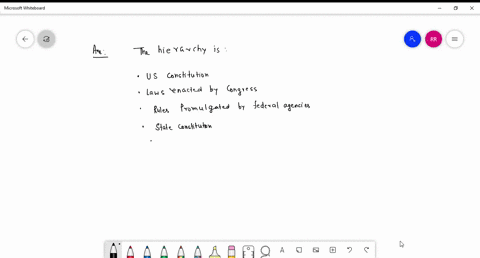 Microsoft Whiteboard
RR
Ans:
The hierarchy is :
• US Constitution
• Laws enacted by Congress
• Rules Promulgated by federal agencies
• State Constitution
•